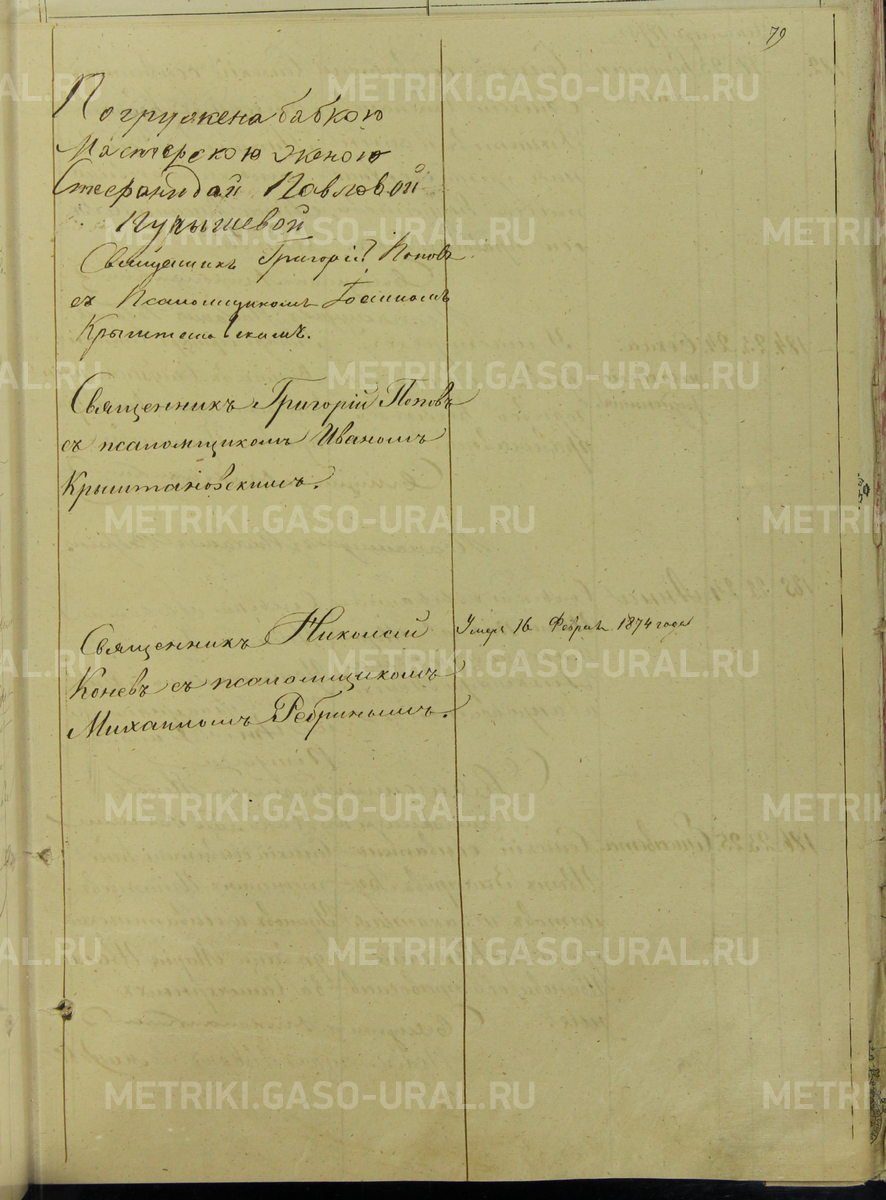 79
Погружена бабкою
Мастерскою женою
Стефанидай Павловой
Священникъ Григорій Поповъ
съ Псаломщикомъ Іоанномъ
Священникъ Григорій Поповъ
съ псаломщикомъ Иваномъ
Крыштановскимъ.
Священникъ Николай
Коневъ съ псаломщикомъ
Михаиломъ Ребринымъ.
Умеръ 16 Февраля 1874 года
METRIKI.GASO-URAL.RU